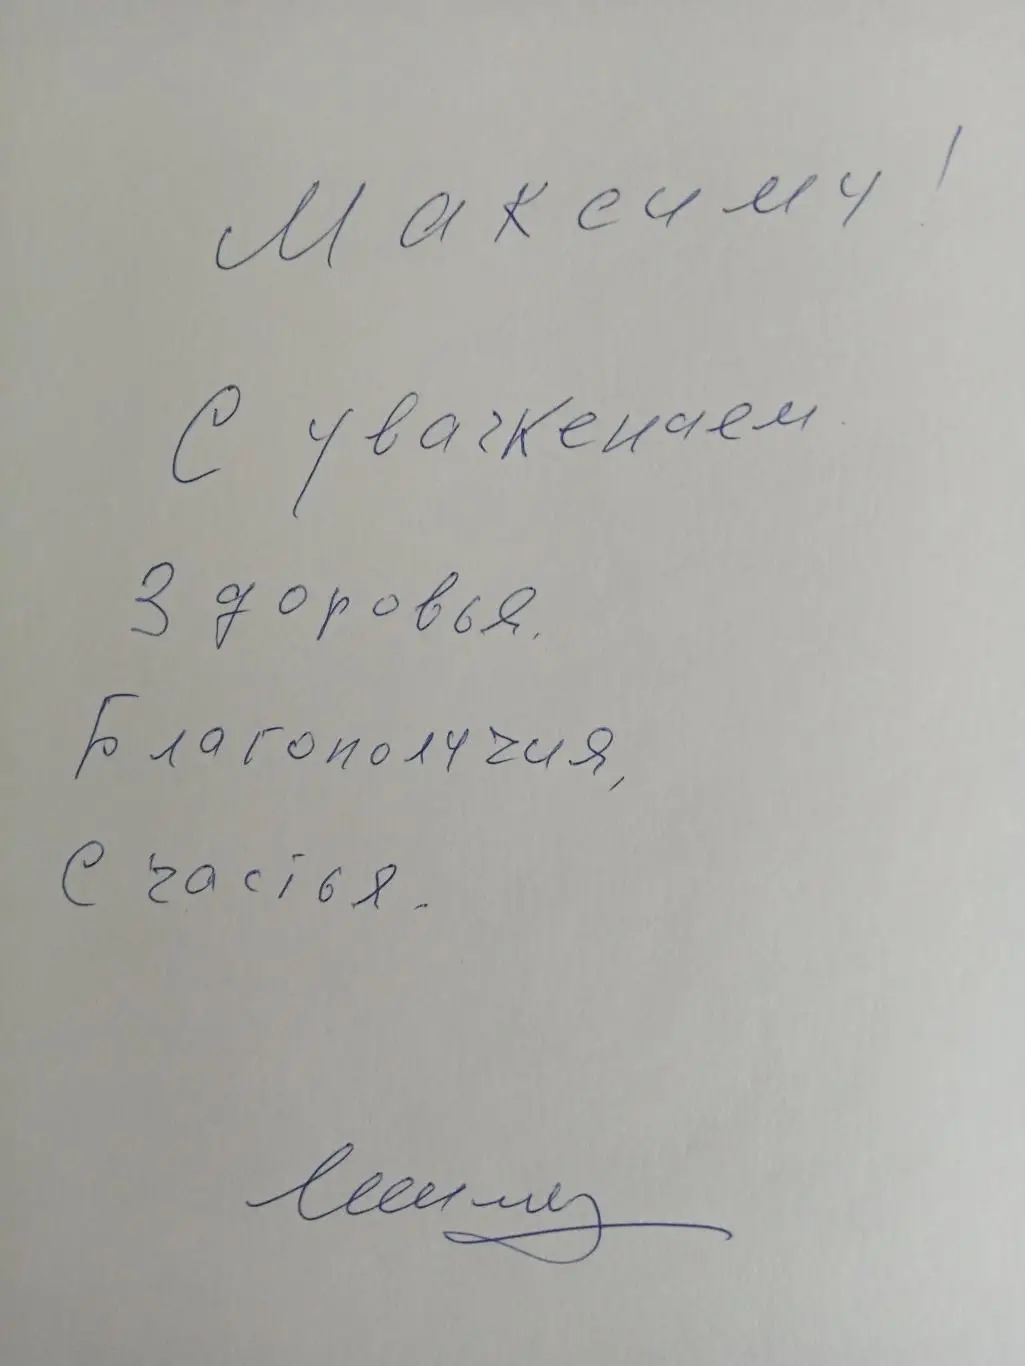 Максиму!
С уважением.
Здоровья.
Благополучия,
Счастья.